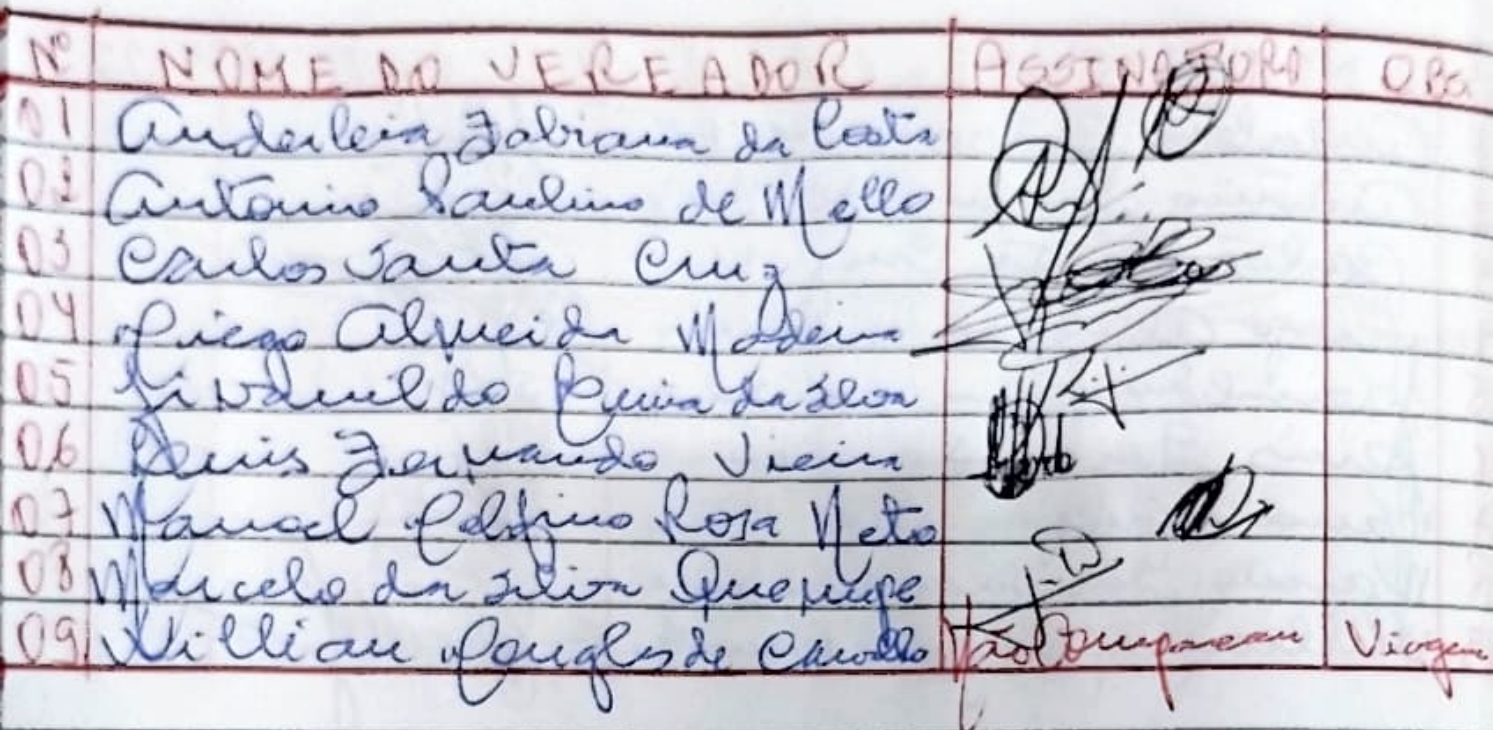 Nº NOME DO VEREADOR ASSINATURA OBS
01 Anderleia Fabiana da Costa
02 Antonio Paulino de Mello
03 Carlos Santa Cruz
04 Diego Almeida Madeira
05 da Silva
06 Denis Fernando Vieira
07 Manoel Delfino Rosa Neto
08 Marcelo da Silva
09 Willian Douglas de Carvallo Não Compareceu Viagem